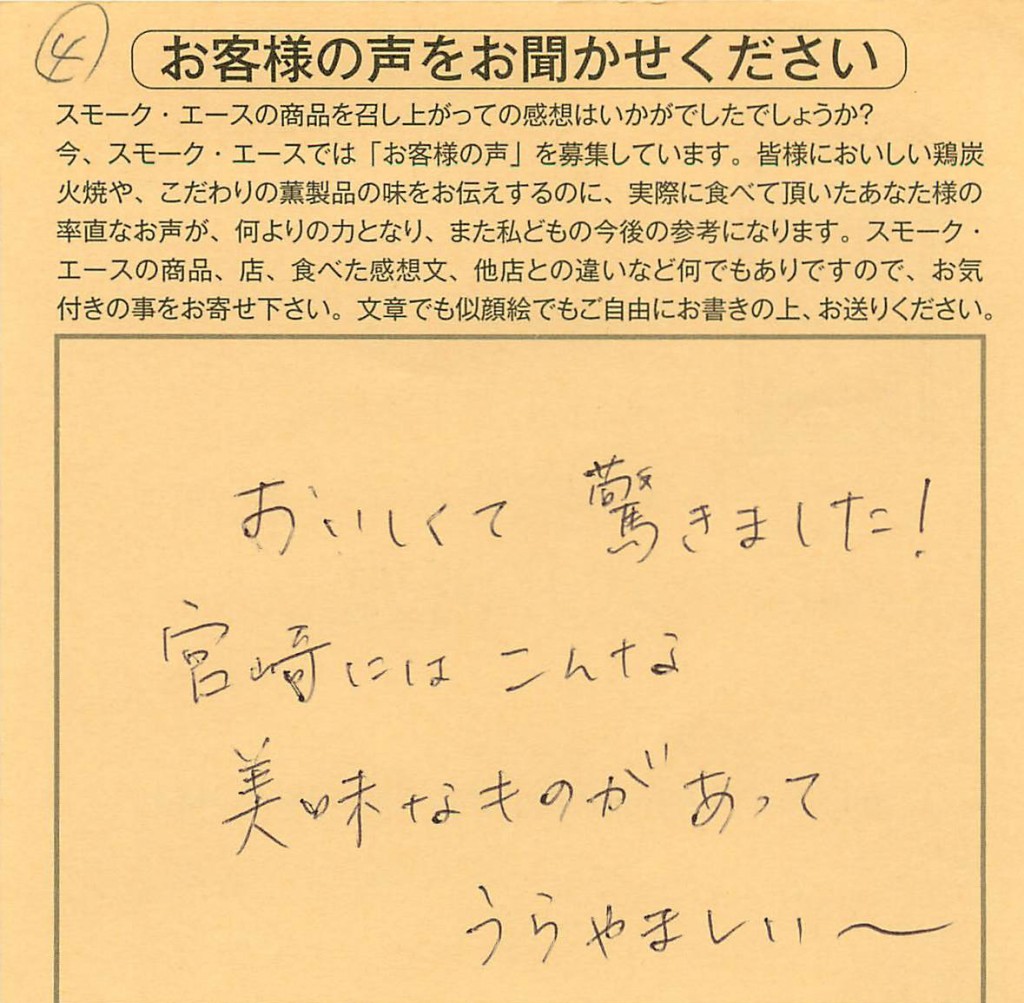 ④
お客様の声をお聞かせください
スモーク・エースの商品を召し上がっての感想はいかがでしたでしょうか?
今、スモーク・エースでは「お客様の声」を募集しています。皆様においしい鶏炭
火焼や、こだわりの薫製品の味をお伝えするのに、実際に食べて頂いたあなた様の
率直なお声が、何よりの力となり、また私どもの今後の参考になります。スモーク・
エースの商品、店、食べた感想文、他店との違いなど何でもありですので、お気
付きの事をお寄せ下さい。文章でも似顔絵でもご自由にお書きの上、お送りください。
おいしくて 驚きました!
宮崎にはこんな
美味なものがあって
うらやましい〜